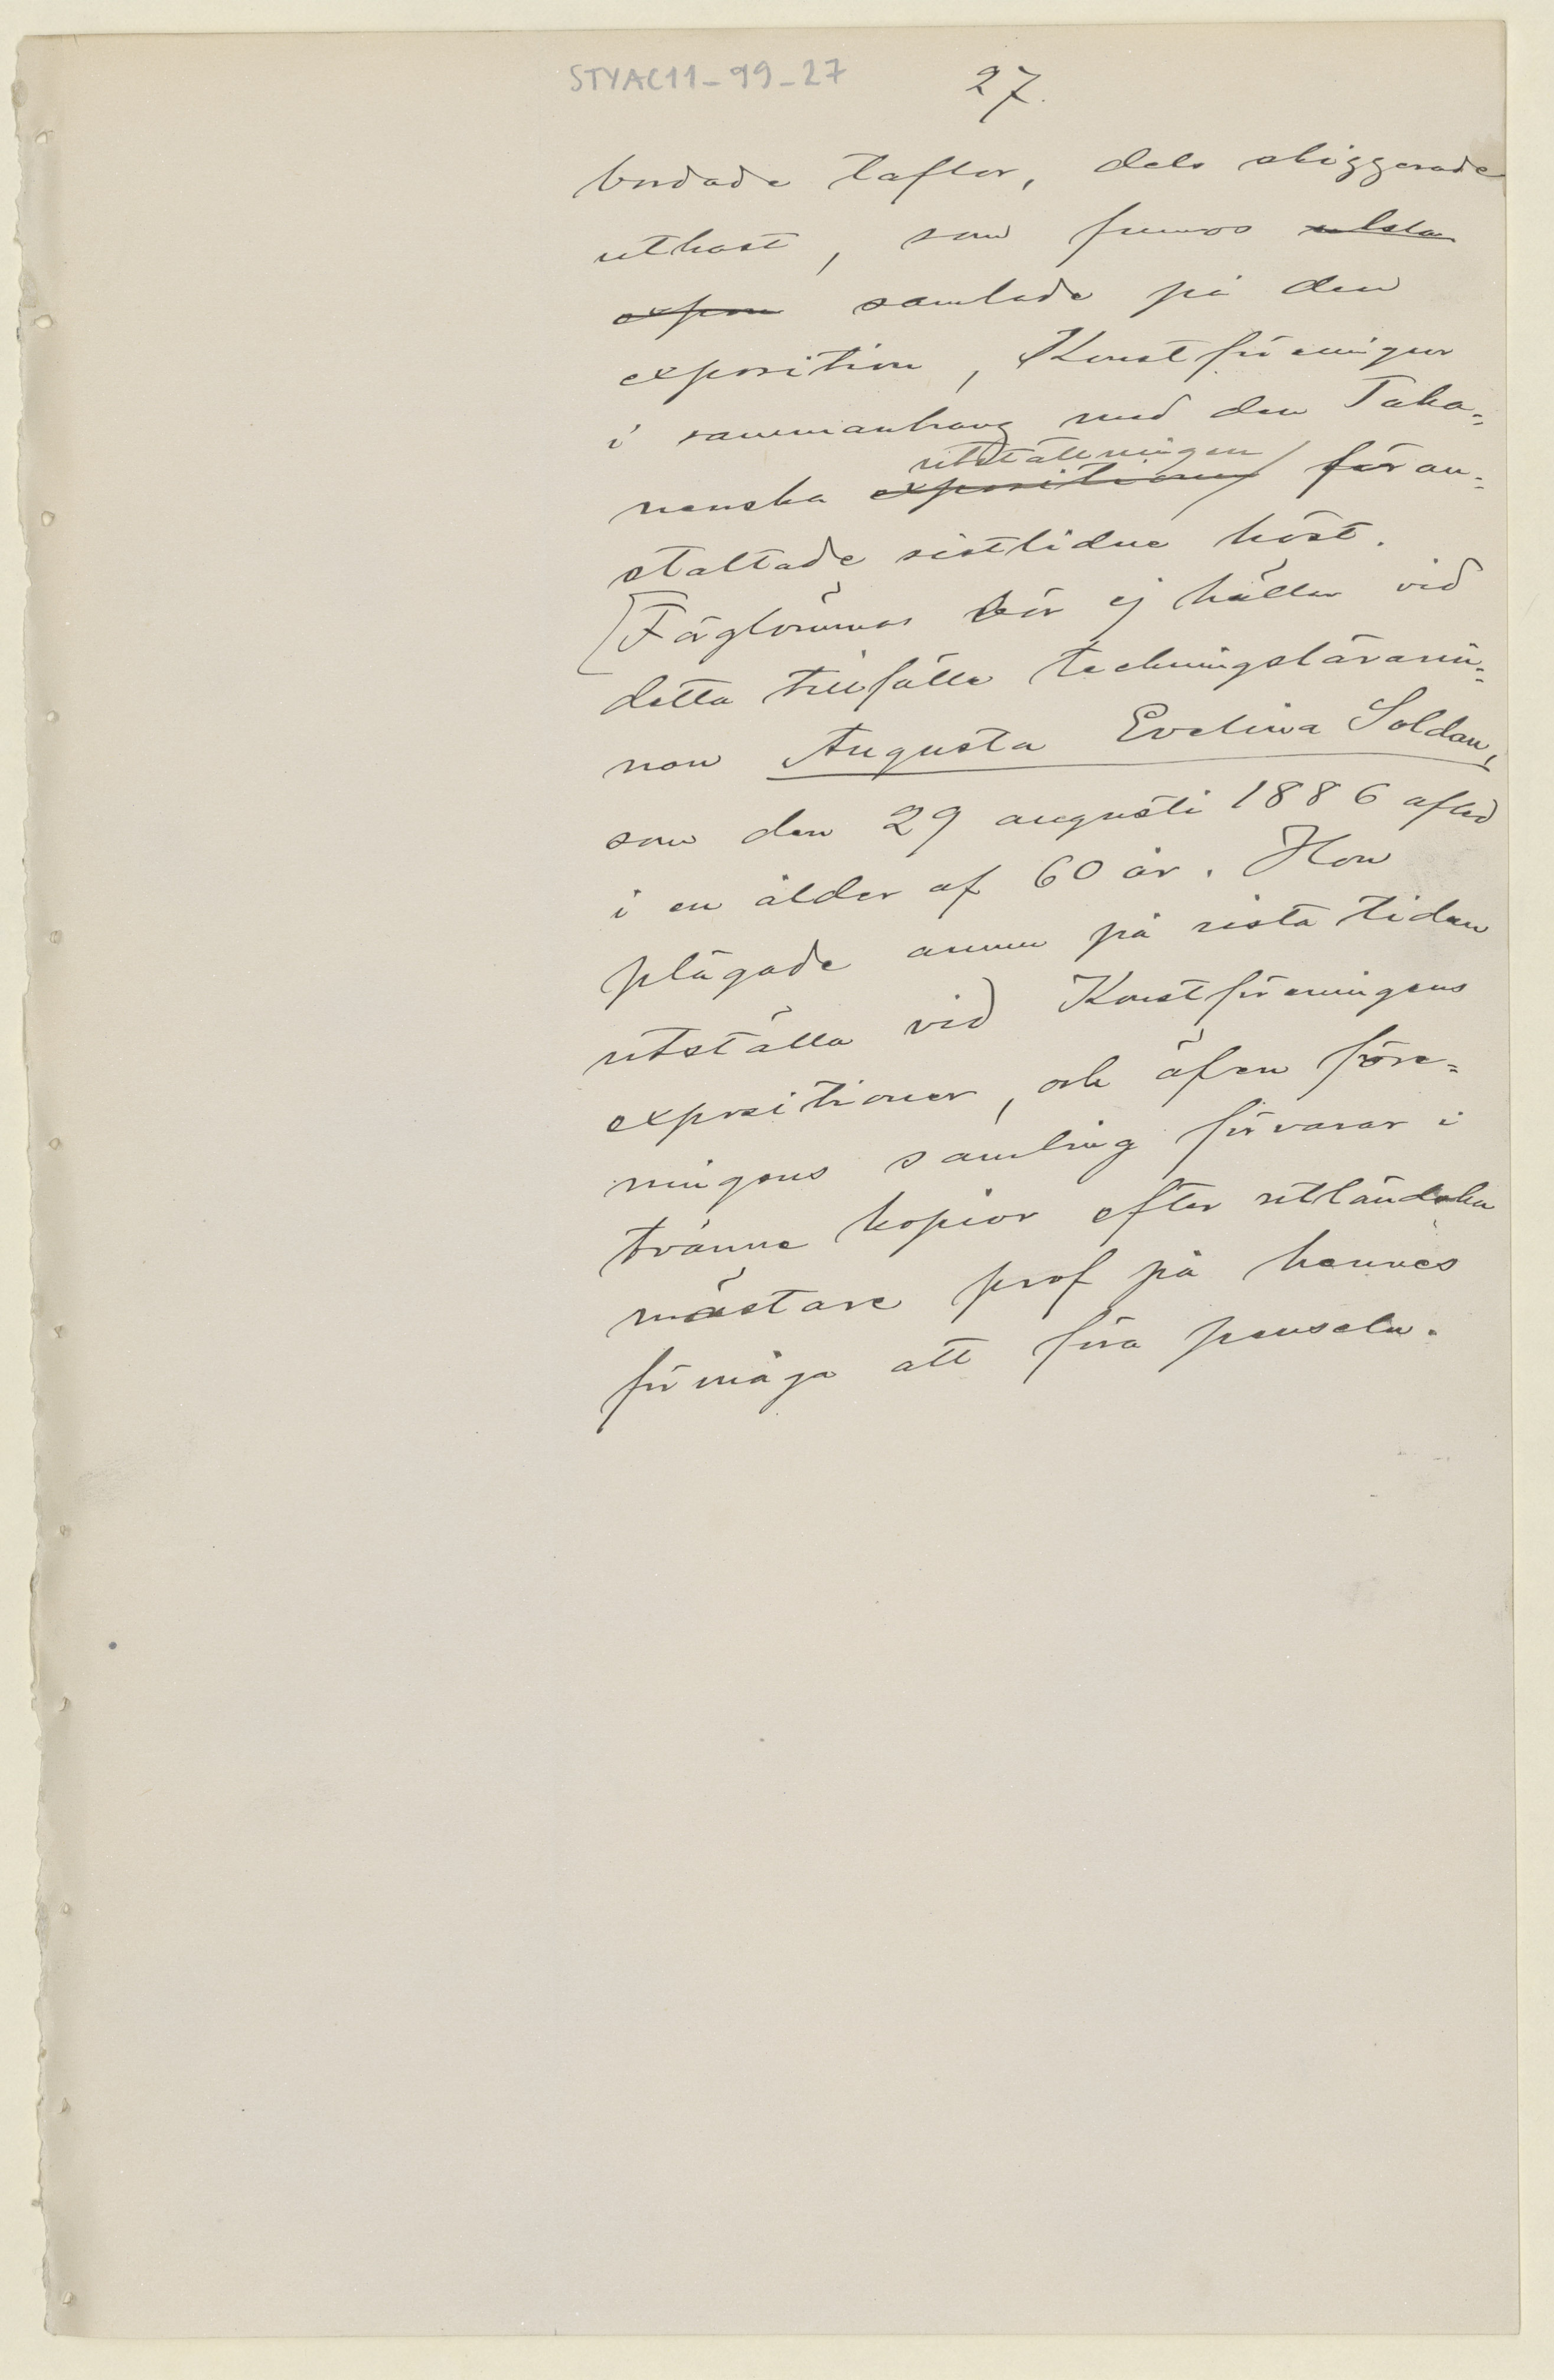 STYAC11_99_27
27.
bordade taflor, dels skizzerade
utkast, som funnos
expon samlade på den
exposition, Konstföreningen
i sammanhang med den Taka-
utställningen
nenska expositionen föran-
staltade sistlidne höst.
[Förglömmas bör ej häller vid
detta tillfälle teckningslärarin-
nan Augusta Evelina Soldan,
som den 29 augusti 1886 afled
i en ålder af 60 år. Hon
plägade ännu på sista tiden
utställa vid Konstföreningens
expositioner, och äfven före-
ningens samling förvarar i
tvänne kopior efter utländska
mästare prof på hennes
förmåga att föra penseln.